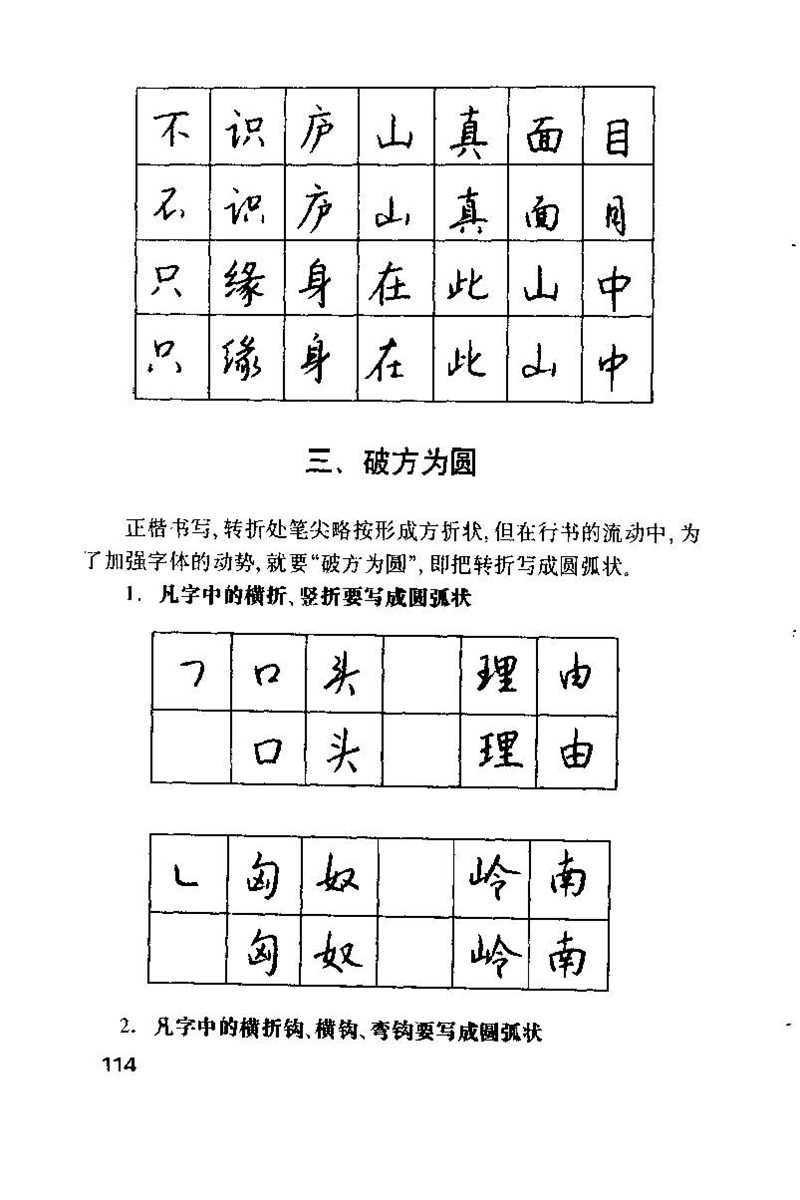 不识庐山真面目
不识庐山真面目
只缘身在此山中
只缘身在此山中
三、破方为圆
正楷书写,转折处笔尖略按形成方折状,但在行书的流动中,为
了加强字体的动势,就要“破方为圆”,即把转折写成圆弧状。
1. 凡字中的横折、竖折要写成圆弧状
㇕ 口 头 理 由
口 头 理 由
㇗ 匈 奴 岭 南
匈 奴 岭 南
2. 凡字中的横折钩、横钩、弯钩要写成圆弧状
114